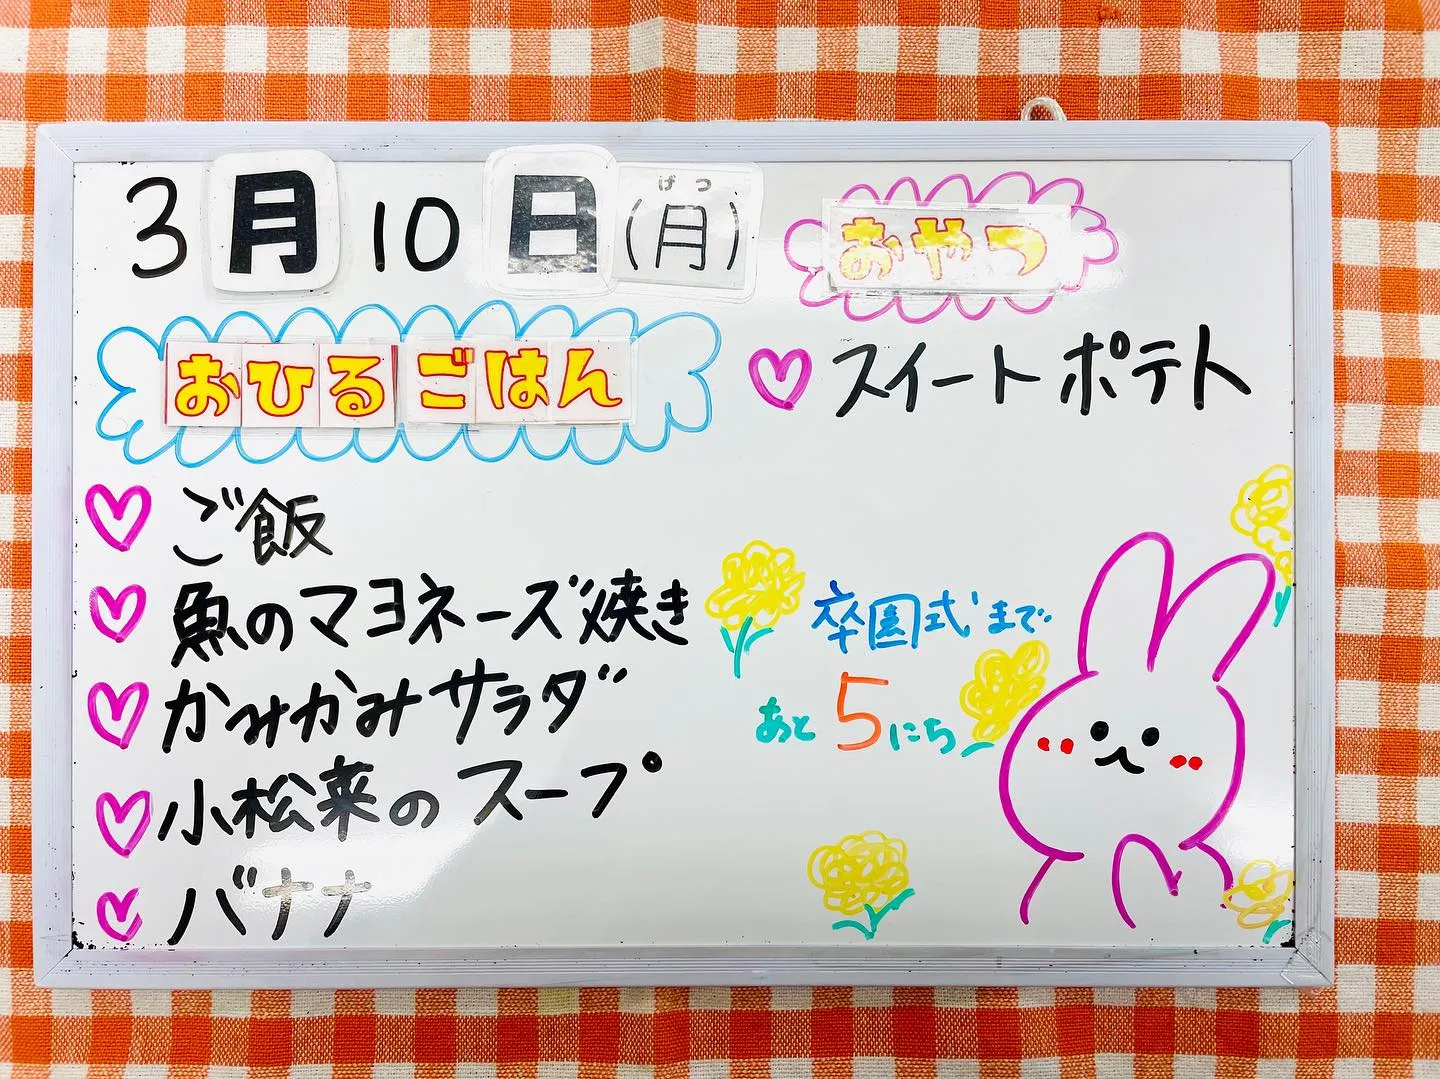 3月10日(月)
げつ
おひるごはん
ご飯
魚のマヨネーズ焼き
かみかみサラダ
小松菜のスープ
バナナ
おやつ
スイートポテト
卒園式まで
あと5にち